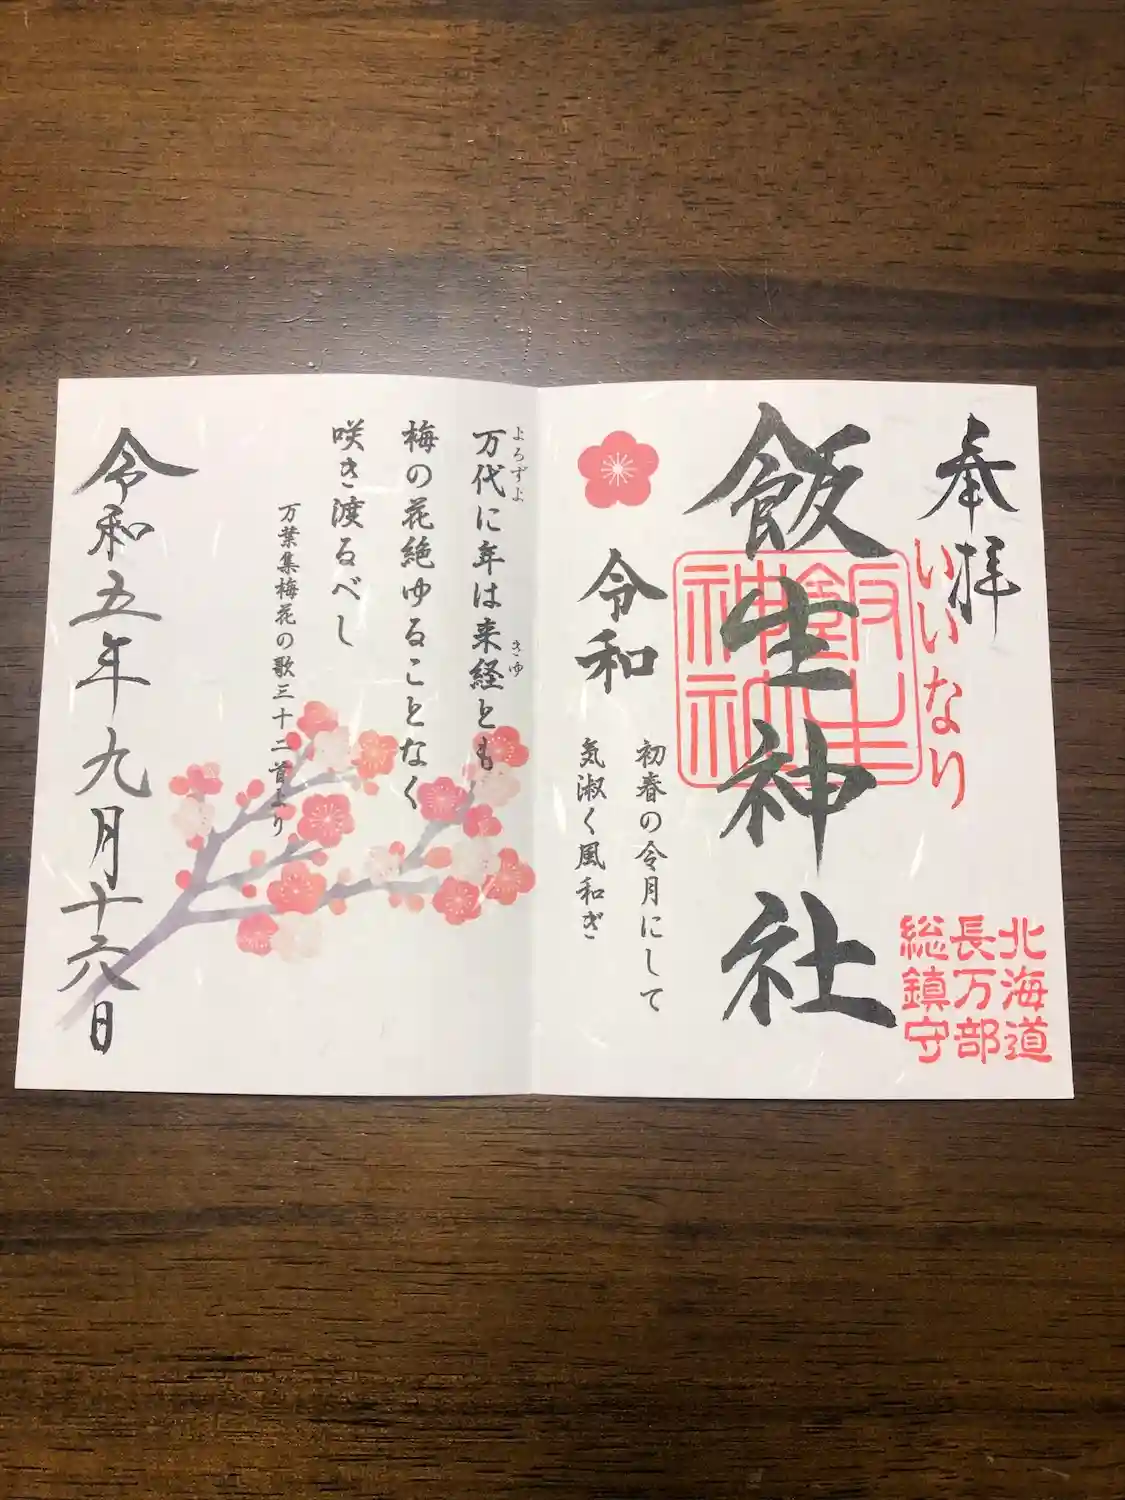 奉拝
いいなり
北海道
長万部
総鎮守
飯生神社
飯生
神社
初春の令月にして
令和
気淑く風和ぎ
万代に年は来経とも
よろずよ
きゆ
梅の花絶ゆることなく
咲き渡るべし
万葉集梅花の歌三十二首より
令和五年九月十六日